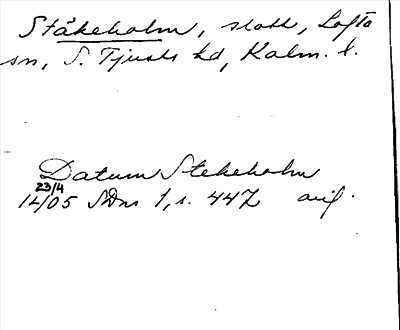 Stäkeholm, slott, Lofta
sn, S. Tjusts hd, Kalm. l.
Datum Stekeholm
23/4
14/05 SDns 1, s. 447 orig.